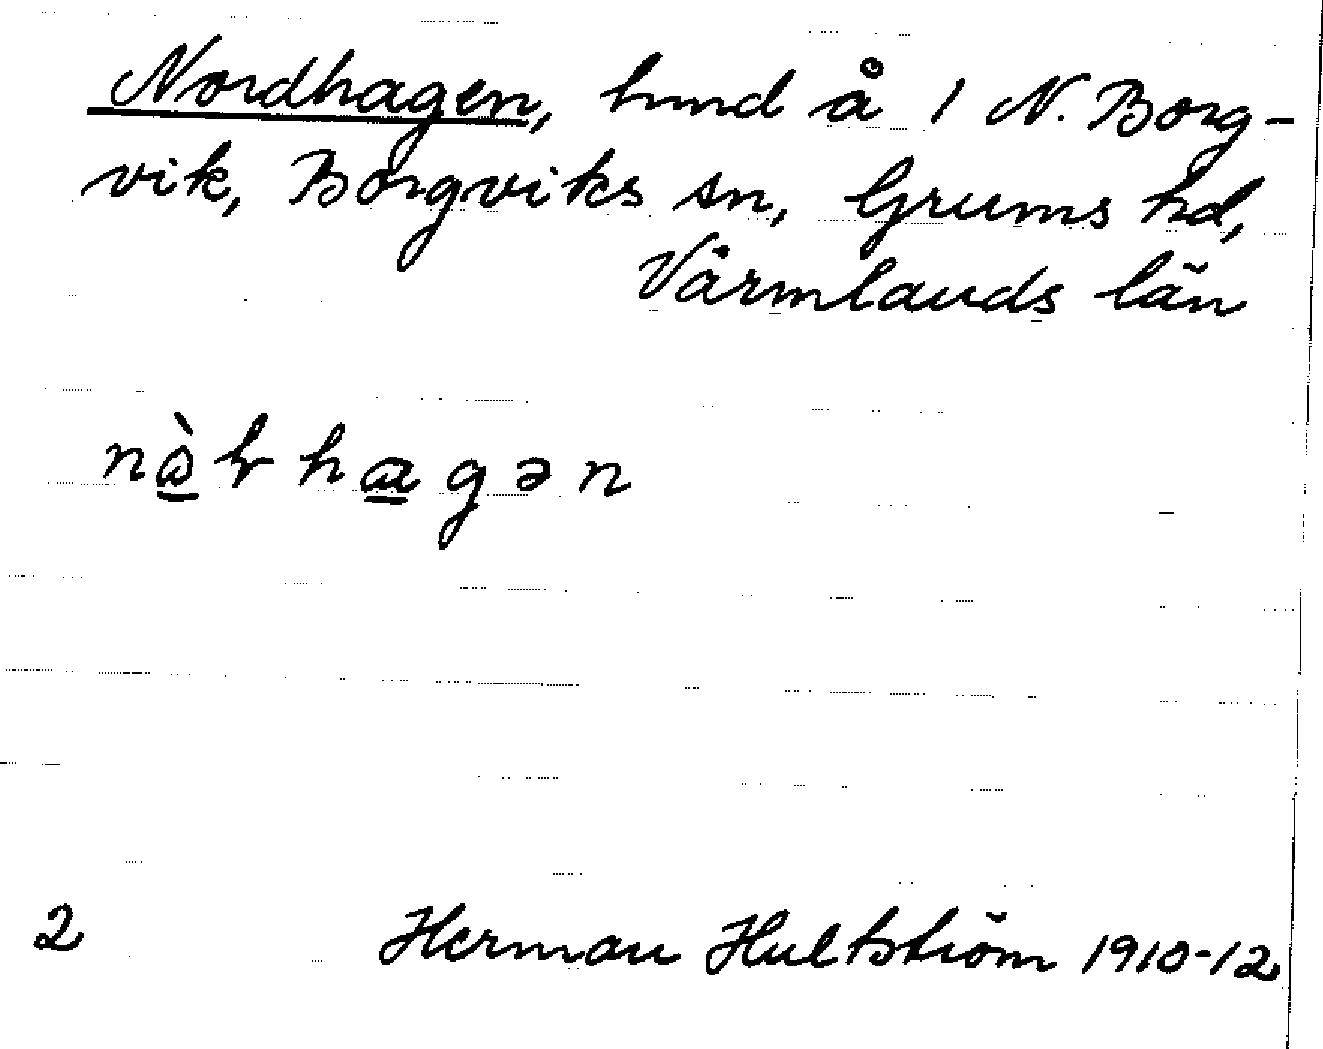 Nordhagen, hmnd å 1 N. Borg-
vik, Borgviks sn, Grums hd,
Värmlands län
hagən
2 Herman Hultström 1910-12